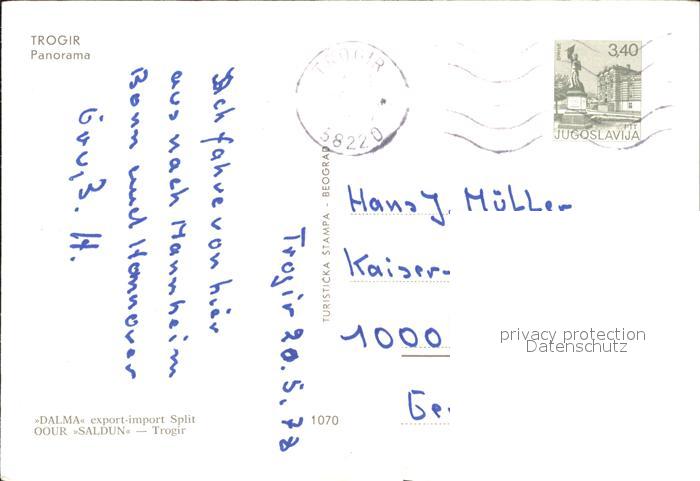 TROGIR
Panorama
TROGIR
58220
3,40
PTT
JUGOSLAVIJA
Trogir 20.5.78
Ich fahre von hier
aus nach Mannheim
Bonn und Hannover
Gruß. H.
TURISTIČKA ŠTAMPA - BEOGRAD
Hans J. Müller
Kaiser-
1000
privacy protection
Datenschutz
Ge
»DALMA« export-import Split
OOUR »SALDUN« — Trogir
1070